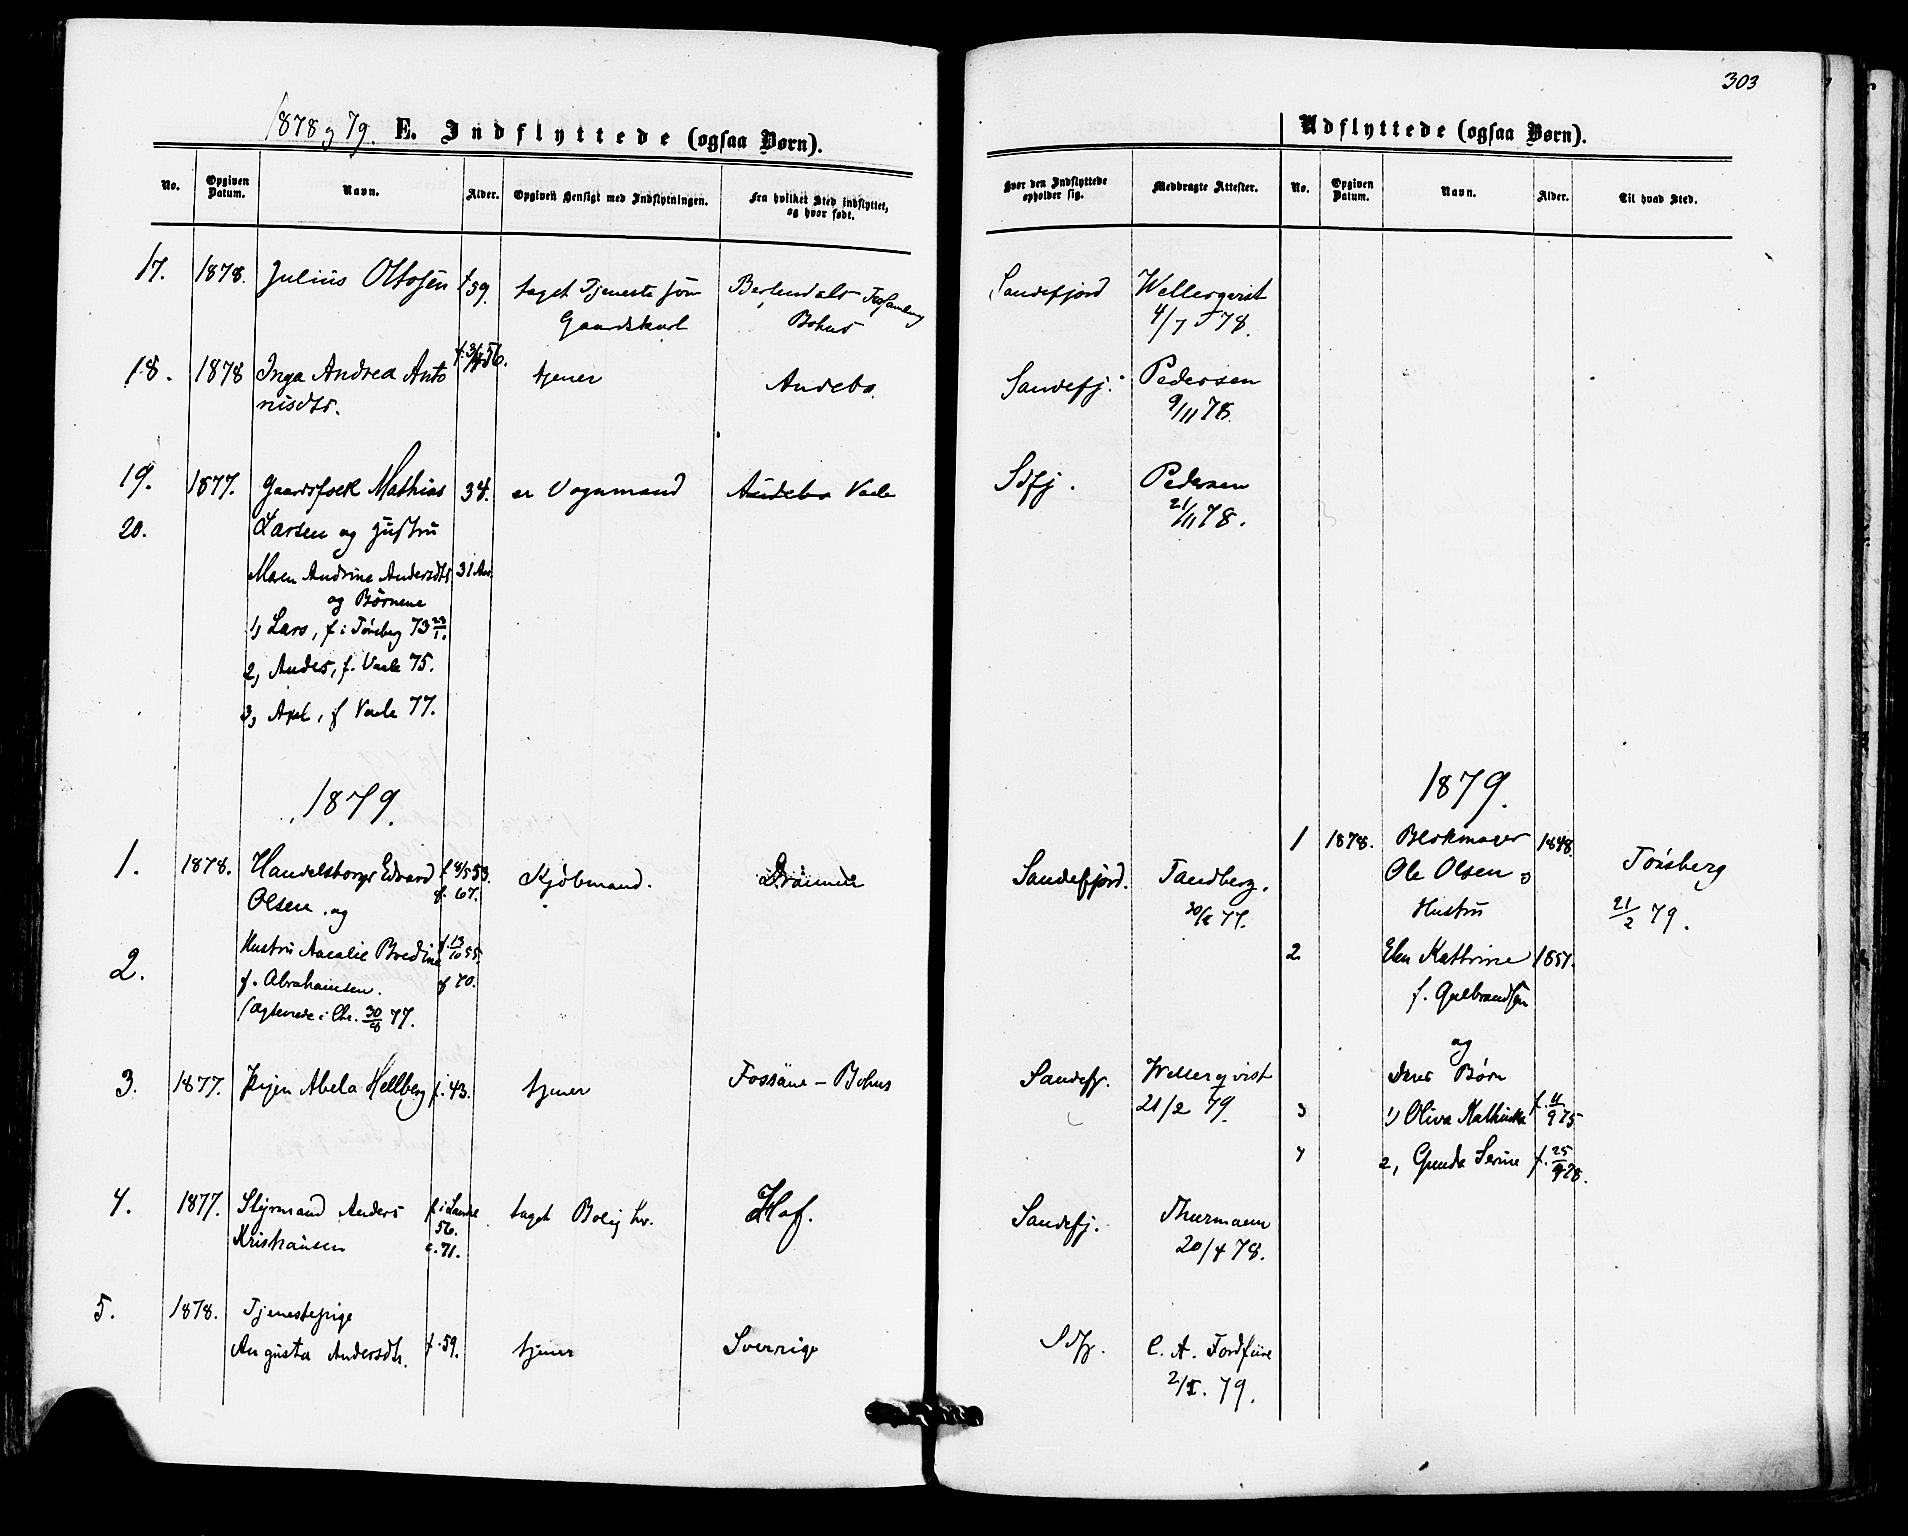 303
1878 og 79. E. Indflyttede (ogsaa Børn).
No. Opgiven Datum. Navn. Alder. Opgiven Hensigt med Indflytningen. Fra hvilket Sted indflyttet, og hvor født.
17. 1878. Julius Ottosen f 59. taget Tjeneste som
Gaardskarl
Bohus
18. 1878 Inga Andrea Anto f. 56. tjener Andebo.
nisdtr.
19. 1877. Mathias 34. er Vognmand Andebo Vaale
20. Larsen og Hustru
Maren Andrine Andersdtr 31 Aar
og Børnene
1, Lars, f i Tønsberg 73 23/1.
2, Anders, f. Vaale 75.
3, Axel, f Vaale 77.
1879.
1. 1878. Handelsborger Edvard f 4/5 53. Kjøbmand.
Olsen og c. 67.
2. Hustru Amalie Bredine f. 13/10 55.
f. Abrahamsen. c 70.
(Ægteviede i Chr. 30/8 77.
3. 1877. Abela Hellberg f. 43. tjener Fossäne - Bohus
4. 1877. Styrmand Anders f i taget Bolig her. Hof.
Kristiansen 56.
c. 71.
5. 1878. Tjenestepige
Augusta Andersdtr. f. 59. tjener Sverrige
Udflyttede (ogsaa Børn).
Hvor den Indflyttede opholder sig. Medbragte Attester. No. Opgiven Datum. Navn. Alder. Til hvad Sted.
Sandefjord Wellerqvist
4/7 78.
Sandefj. Pedersen
9/11 78.
Sdfj. Pedersen
21/11 78.
1879.
1 1878. Blokmager 1848. Tønsberg
Sandefjord. Tandberg. Ole Olsen og
Hustru 21/2 79.
2. Elen Kathrine 1851.
f. Gulbrandsen
og
Sandefj. Wellerqvist deres Børn
21/2 79. 3 1) Oliva f. 11/9 75
4 2, Gunda Serine f. 25/9 78.
Sandefj. Thurmann
20/4 78.
Sdfj. C. A.
2/1. 79.